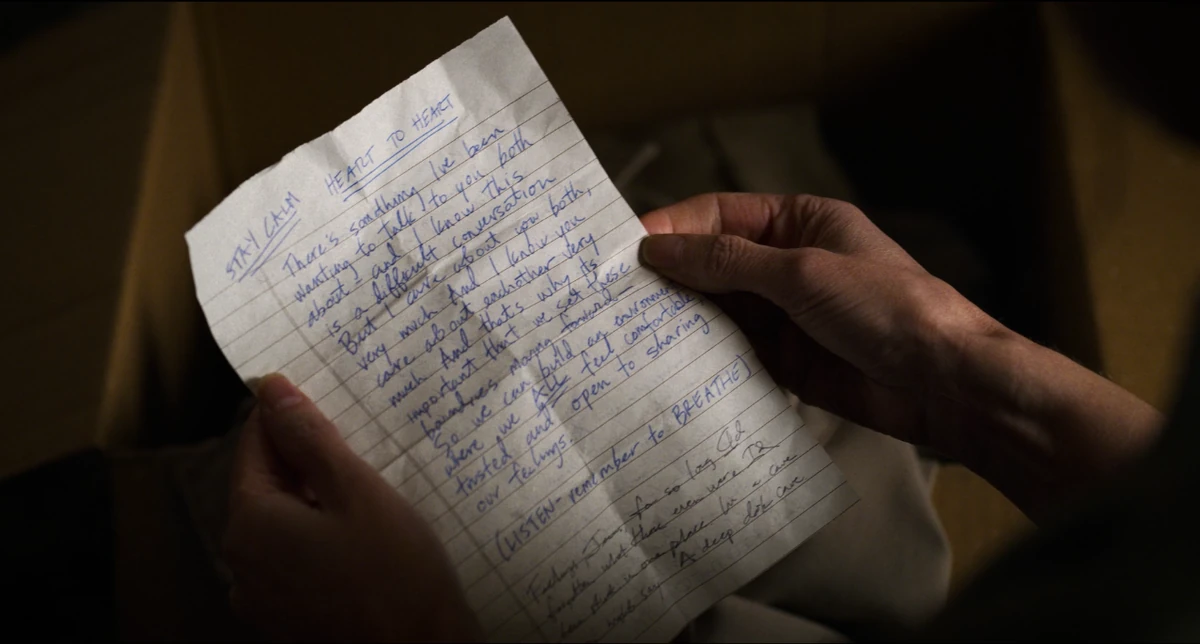 STAY CALM HEART TO HEART
There's something I've been
wanting to talk to you both
about - and I know this
is a difficult conversation
But I care about you both,
very much And I know you
care about eachother very
much And that's why its
important that we set these
boundries moving forward -
So we can build an environme
where we ALL feel comfortable
trusted and open to sharing
our feelings.
(LISTEN - remember to BREATHE)
Feelings. Jesus, for so long I'd
what those even were I'd
been stuck in one place in a cave
might say. A deep dark cave